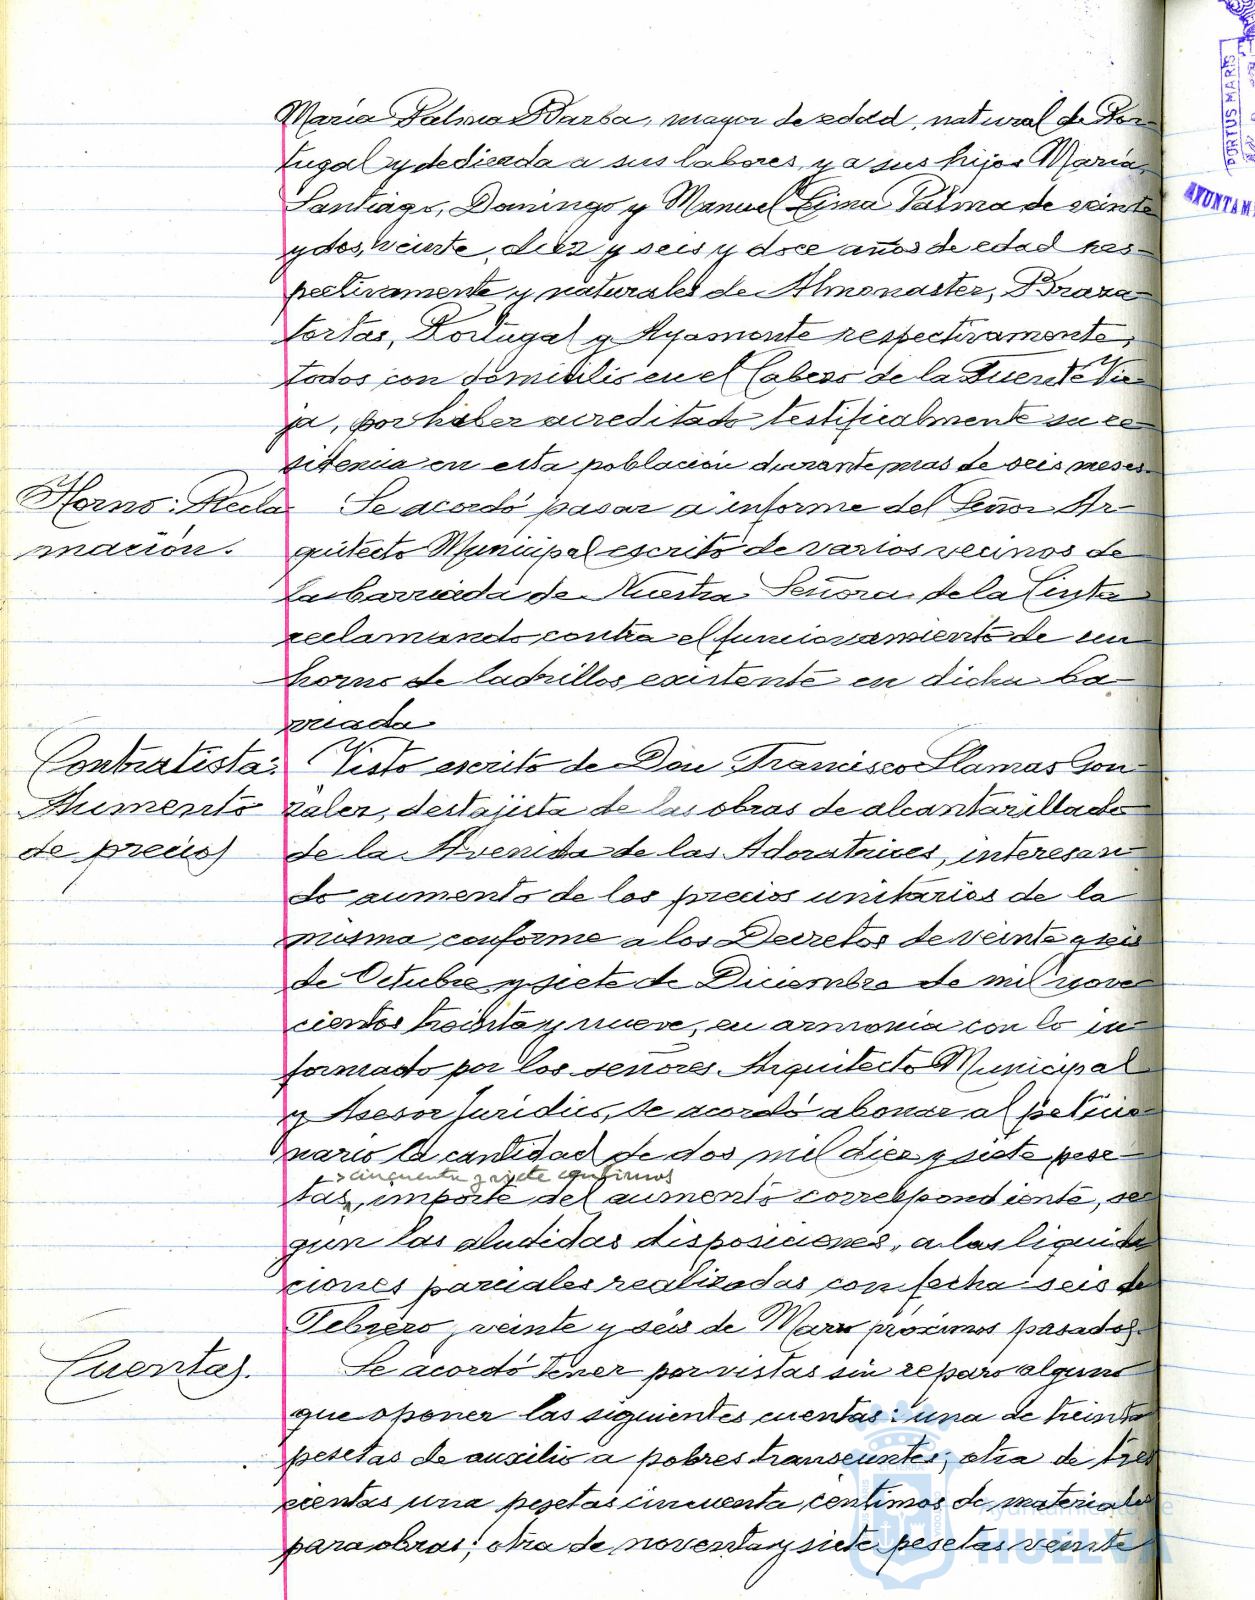 María Palma Barba, mayor de edad, natural de Por-
tugal y dedicada a sus labores, y a sus hijos María,
Santiago, Domingo y Manuel Lima Palma de veinte
y dos, veinte, diez y seis y doce años de edad res-
pectivamente y naturales de Almonaster, Braza
tortas, Portugal y Ayamonte respectivamente,
todos con domicilio en el Cabezo de la Fuente Vie-
ja, por haber acreditado testificalmente su re-
sidencia en esta población durante mas de seis meses.
Horno: Recla
mación.
Se acordó pasar a informe del Señor Ar-
quitecto Municipal escrito de varios vecinos de
la barriada de Nuestra Señora de la Cinta
reclamando contra el funcionamiento de un
horno de ladrillos existente en dicha ba-
rriada
Contratista:
Aumento
de precios
Visto escrito de Don Francisco Llamas Gon-
zalez, destajista de las obras de alcantarillado
de la Avenida de las Adoratrices, interesan-
do aumento de los precios unitarios de la
misma, conforme a los Decretos de veinte y seis
de Octubre y siete de Diciembre de mil nove-
cientos treinta y nueve, en armonia con lo in-
formado por los señores Arquitecto Municipal
y Asesor Juridico, se acordó abonar al peticio-
nario la cantidad de dos mil diez y siete pese-
cincuenta y siete centimos
tas, importe del aumento correspondiente, se-
gun las aludidas disposiciones, a las liquida
ciones parciales realizadas con fecha seis de
Febrero, veinte y seis de Marzo próximos pasados.
Cuentas.
Se acordó tener por vistas sin reparo alguno
que oponer las siguientes cuentas: una de treinta
pesetas de auxilio a pobres transeuntes; otra de tres
cientas una pesetas cincuenta centimos de materiales
para obras; otra de noventa y siete pesetas veinte
PORTUS MARIS
AYUNTAM
Ayuntamiento de
HUELVA